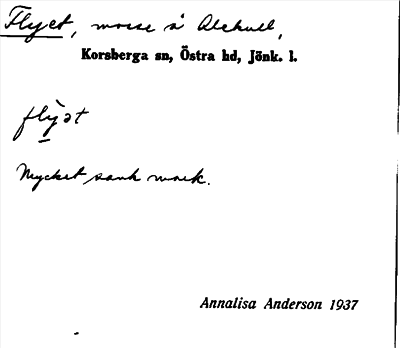 Flyet, mosse å Alekull,
Korsberga sn, Östra hd, Jönk. l.
flỳət
Mycket sank mark.
Annalisa Anderson 1937